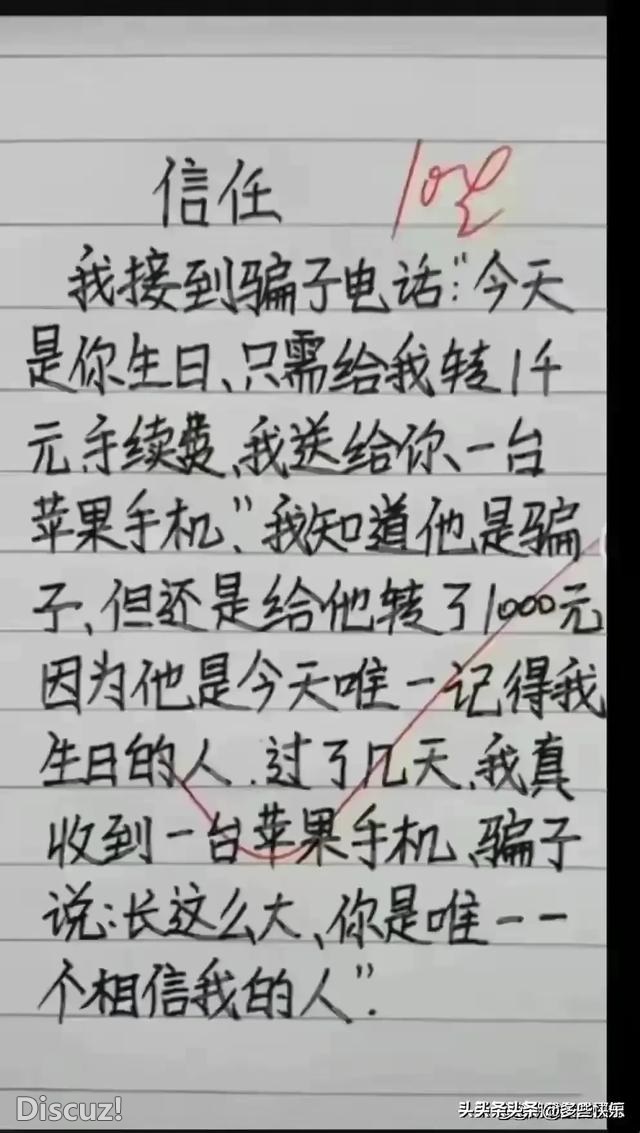 信任
我接到骗子电话:“今天
是你生日、只需给我转1千
元手续费、我送给你一台
苹果手机”。我知道他是骗
子、但还是给他转了1000元
因为他是今天唯一记得我
生日的人.过了几天、我真
收到一台苹果手机、骗子
说:长这么大、你是唯一一
个相信我的人”.
Discuz!
头条 @多些快乐